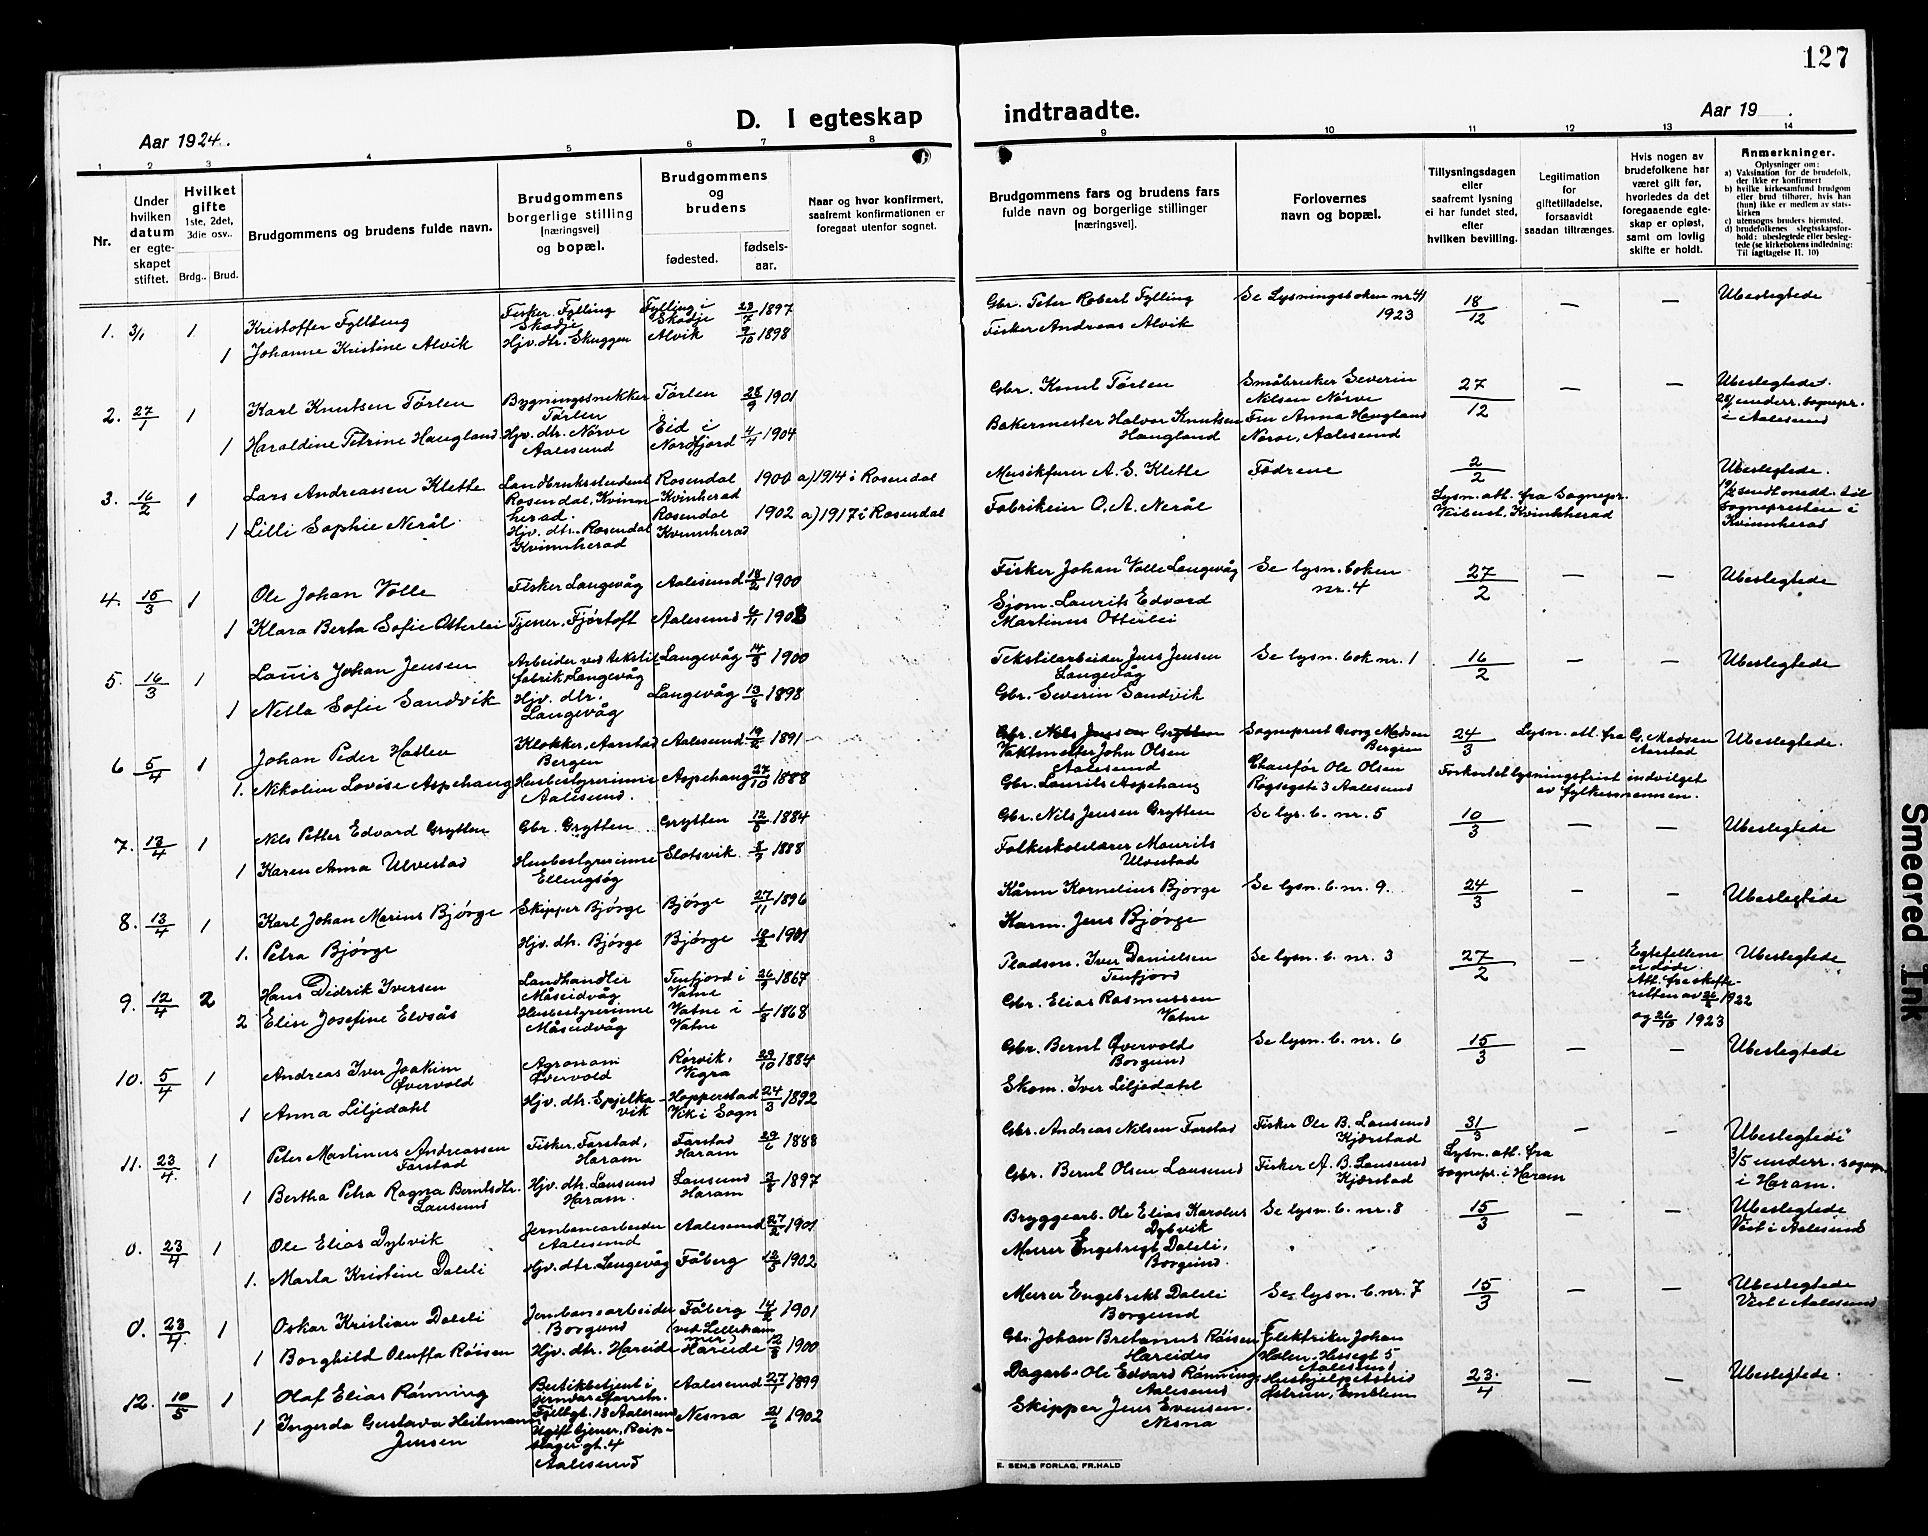 127
D. I egteskap indtraadte.
Aar 1924.
Aar 19
1 2 3 4 5 6 7 8 9 10 11 12 13 14
Nr.
Under hvilken datum er egteskapet stiftet.
Hvilket gifte 1ste, 2det, 3die osv.. Brdg.. Brud.
Brudgommens og brudens fulde navn.
Brudgommens borgerlige stilling (næringsvei) og bopæl.
Brudgommens og brudens
fødested.
fødsels-aar.
Naar og hvor konfirmert, saafremt konfirmationen er foregaat utenfor sognet.
Brudgommens fars og brudens fars fulde navn og borgerlige stillinger (næringsvei).
Forlovernes navn og bopæl.
Tillysningsdagen eller saafremt lysning ei har fundet sted, efter hvilken bevilling.
Legitimation for giftetilladelse, forsaavidt saadan tiltrænges.
Hvis nogen av brudefolkene har været gift før, hvorledes da det foregaaende egteskap er opløst, samt om lovlig skifte er holdt.
Anmerkninger.
Oplysninger om:
a) Vaksination for de brudefolk, der ikke er konfirmert
b) hvilke kirkesamfund brudgom eller brud tilhører, hvis han (hun) ikke er medlem av statskirken
c) utensogns bruders hjemsted.
d) brudefolkenes slegtsskapsforhold: ubeslegtede eller beslegtede (se kirkebokens indledning: Til iagttagelse II. 10)
1. 3/1 1 Kristoffer Fylling Fisker. Fylling Skodje Fylling i Skodje 23/7 1897 Gbr. Peter Robert Fylling Se Lysningsboken nr 41 1923 18/12 — — Ubeslegtede
1 Johanne Kristine Alvik Hjv. dtr. Skuggen Alvik 9/10 1898 Fisker Andreas Alvik
2. 27/1 1 Karl Knutsen Tørlen Bygningssnekker Tørlen Tørlen 28/9 1901 Gbr. Knut Tørlen Småbruker Severin Nilsen Nørve 27/12 — — Ubeslegtede.
underr. sognepr. i Aalesund
1 Haraldine Petrine Haugland Hjv. dtr. Nørve Aalesund Eid i Nordfjord 4/4 1904 Bakermester Halvor Knutsen Haugland Fru Anna Haugland Nørve, Aalesund
3. 16/2 1 Lars Andreassen Klette Landbruksstudent Rosendal, Kvinnherad. Rosendal Kvinherad 1900 a) 1914 i Rosendal Musikfurer A. S. Klette Fødrene 2/2 Ubeslegtede.
Lysn. att. fra Sognepr. Kvinnherad
sendt medt. til sognepresten i Kvinnherad
1 Lilli Sophie Nerål Hjv. dtr. Rosendal Kvinnherad Rosendal Kvinnherad 1902 a) 1917 i Rosendal Fabrikeier O. A. Nerål
4. 15/3 1 Ole Johan Volle Fisker Langevåg Aalesund 18/2 1900 Fisker Johan Volle Langevåg Se lysn. boken nr. 4 27/2 — — Ubeslegtede
1 Klara Berta Sofie Otterlei Tjener. Fjørtoft Aalesund 4/11 1903 Sjøm. Laurits Edvard Martinus Otterlei
5. 16/3 1 Lauis Johan Jensen Arbeider ved tekstilfabrik Langevåg Langevåg 14/3 1900 Tekstilarbeider Jens Jensen Langevåg Se lysn. bok nr. 1 16/2 — — Ubeslegtede
1 Netla Sofie Sandvik Hjv. dtr. Langevåg Langevåg 13/8 1898 Gbr. Severin Sandvik
6 5/4 1 Johan Peder Hatlen Klokker, Aarstad Bergen Aalesund 19/2 1891 Gbr. Nils Jensen Grytten Vaktmester John Olsen Aalesund Sogneprest Georg Madsen Bergen 24/3 Lysn. att. fra G. Madsen Aarstad Ubeslegtede.
1. Nikoline Lovise Aspehaug Husbestyrerinne Aalesund. Aspehaug 27/10 1888 Gbr. Laurits Aspehaug Chaufør Ole Olsen Røgsegt. 3 Aalesund Forkortet lysningsfrist indvilget av fylkesmannen.
7. 13/4 1 Nils Petter Edvard Grytten Gbr. Grytten Grytten 12/5 1884 Gbr. Nils Jensen Grytten Se lys. b. nr. 5 10/3 — — Ubeslegtede
1 Karen Anna Ulvestad Husbestyrerinne Ellingsøy Slotsvik. 8/7 1888 Folkeskolelærer Maurits Ulvestad
8. 13/4 1 Karl Johan Marius Bjørge Skipper Bjørge Bjørge 27/11 1896 Kårm Kornelius Bjørge Se lysn. b. nr. 9. 24/3 — — Ubeslegtede
1. Petra Bjørge Hjv. dtr. Bjørge Bjørge 1901 Karm. Jens Bjørge
9. 12/4 2 Hans Didrik Iversen Landhandler Måseidvåg Tenfjord i Vatne 26/9 1867 Pladsm. Iver Danielsen Tenfjord Se lysn. b. nr. 3 27/2 — Egtefellene er døde. Att. fra skifteretten av 1922 og 26/10 1923 Ubeslegtede
2 Elise Josefine Elvsås Husbestyrerinne Måseidvåg Vatne i Vatne 1/8 1868 Gbr. Elias Rasmussen Vatne
10. 5/4 1 Andreas Iver Joakim Øvervold Agronom Øvervold Rørvik, Vegra 23/10 1884 Gbr. Bernt Øvervold Borgund Se lysn. b. nr. 6 15/3 — — Ubeslegtede
1 Anna Liljedahl Hjv. dtr. Spjelkavik Hopperstad Vik i Sogn 24/3 1892 Skom. Iver Liljedahl
11. 23/4. 1 Peter Martinus Andreassen Farstad Fisker. Farstad, Haram Farstad Haram 29/6 1888 Gbr. Andreas Nilsen Farstad Fisker Ole B. Lausund Kjærstad 31/3 — — Ubeslegtede
Lysn. att. fra sognepr. i Haram
3/5 underr. sognepr. i Haram.
1 Bertha Petra Ragna Berntsdtr. Lausund Hjv. dtr. Lausund Haram. Lausund Haram 1897 Gbr. Bernt Olsen Lausund Fisker A. B. Lausund Kjærstad
0. 23/4 1 Ole Elias Dybvik Jernbanearbeider Aalesund Aalesund 27/2 1901 Bryggearb. Ole Elias Karolus Dybvik Se lysn. b. nr. 8 15/3 — — Ubeslegtede
Vist i Aalesund
1. Marta Kristine Daleli Hjv. dtr. Langevåg Fåberg 12/3 1902 Murer Engebregt Daleli, Borgund.
0. 23/4. 1 Oskar Kristian Daleli Jernbanearbeider Borgund Fåberg (ved Lillehammer) 14/2 1901 Murer Engebrekt Daleli Borgund Se lysn. b. nr. 7 15/3 — — Ubeslegtede
Vist i Aalesund
1 Borghild Oluffa Røisen Hjv. dtr. Hareide Hareide 12/3 1900 Gbr. Johan Bretanus Røisen Hareide Elektriker Johan Holen. Hessegt 5 Aalesund
12. 10/5 1 Olaf Elias Rønning Butikbetjent i jernvareforretn. Fjellgt. 18 Aalesund Aalesund 27/1 1899 Dagarb. Ole Edvard Rønning Aalesund Hushjelp Astrid Østrem, Emblem 23/4 — — Ubeslegtede.
1 Ingerda Gustava Heitmann Jensen Ugift tjener, Reipslagergt. 4 Aalesund Nesna 21/6 1902 Skipper Jens Evensen. Nesna
E. SEM.S FORLAG, FR.HALD
Smeared Ink